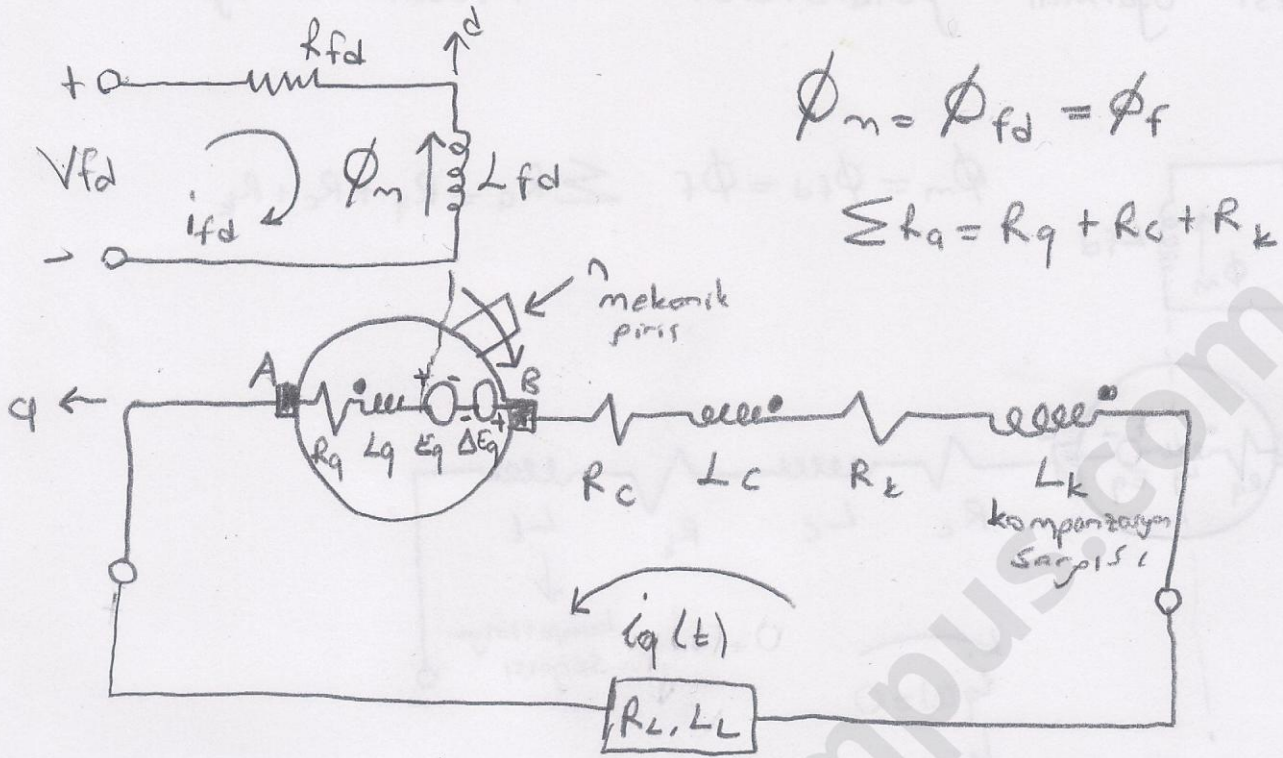 d
Rfd
+
Vfd
ifd
-
Φm
Lfd
Φm = Φfd = Φf
ΣRa = Rq + Rc + Rk
n
mekanik
giriş
q
A
+ -
- +
B
Rq Lq Eq ΔEq
Rc Lc Rk Lk
kompanzasyon
sargısı
iq(t)
RL, LL
mpus.com